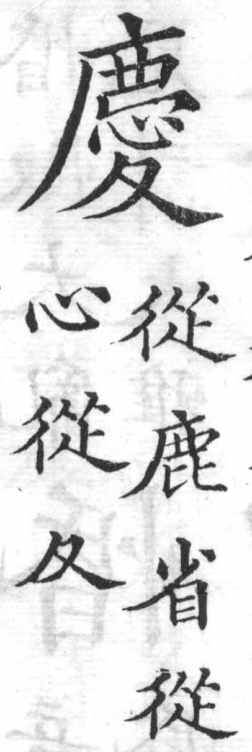 慶
從鹿省從
心從夊